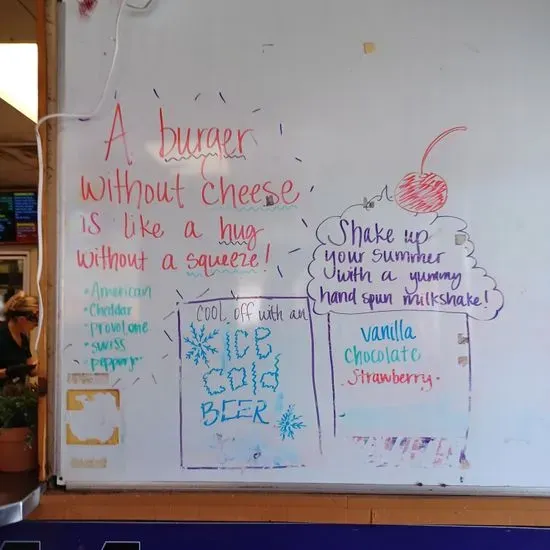 A burger
without cheese
is like a hug
without a squeeze!
•American
•Cheddar
•provolone
•swiss
•pepperja
Shake up
your summer
with a yummy
hand spun milkshake!
COOL off with an
ICE
Cold
BEER
vanilla
Chocolate
Strawberry